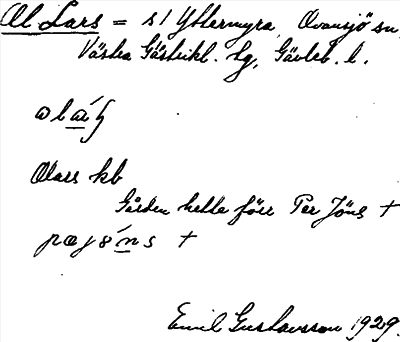 Ol Lars = s/ Yttermyra, Ovansjö sn,
Västra Gästrikl. hg, Gävleb. l.
Olars kb
Gården hette förr Per Jöns +
Emil Gustavsson 1929.